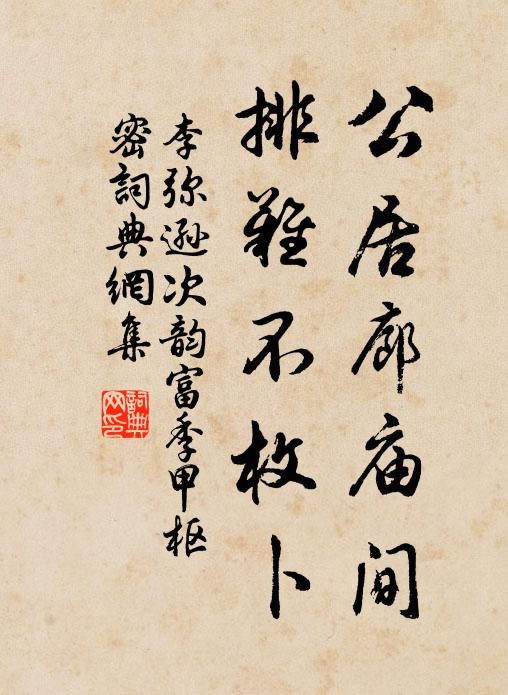 公居廊庙间
排难不枚卜
李弥逊次韵富季甲枢
密詞典網集
詞典
网印